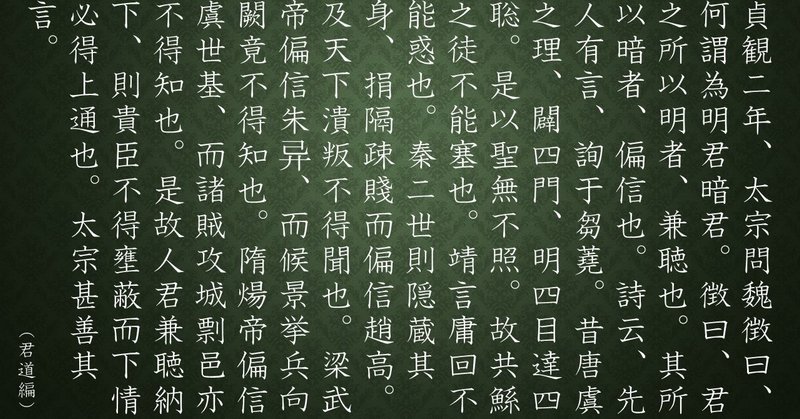 貞観二年、太宗問魏徴曰、
何謂為明君暗君。徴曰、君
之所以明者、兼聴也。其所
以暗者、偏信也。詩云、先
人有言、詢于芻蕘。昔唐虞
之理、闢四門、明四目達四
聡。是以聖無不照。故共鯀
之徒不能塞也。靖言庸回不
能惑也。秦二世則隠蔵其
身、捐隔疎賤而偏信趙高。
及天下潰叛不得聞也。梁武
帝偏信朱异、而候景挙兵向
闕竟不得知也。隋煬帝偏信
虞世基、而諸賊攻城剽邑亦
不得知也。是故人君兼聴納
下、則貴臣不得壅蔽而下情
必得上通也。太宗甚善其
言。
（君道編）